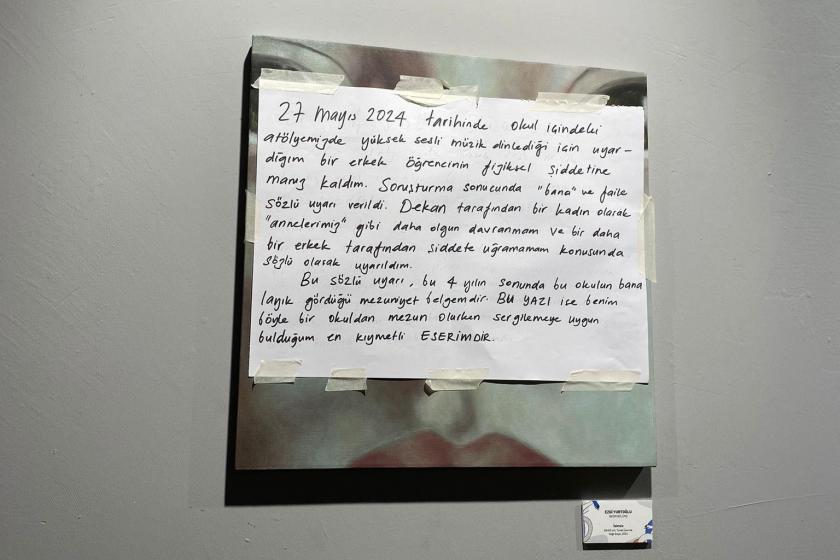 27 Mayıs 2024 tarihinde okul içindeki
atölyemizde yüksek sesli müzik dinlediği için uyar-
dığım bir erkek öğrencinin fiziksel şiddetine
maruz kaldım. Soruşturma sonucunda "bana" ve faile
sözlü uyarı verildi. Dekan tarafından bir kadın olarak
"annelerimiz" gibi daha olgun davranmam ve bir daha
bir erkek tarafından şiddete uğramamam konusunda
sözlü olarak uyarıldım.
Bu sözlü uyarı, bu 4 yılın sonunda bu okulun bana
layık gördüğü mezuniyet belgemdir. BU YAZI ise benim
böyle bir okuldan mezun olurken sergilemeye uygun
bulduğum en kıymetli ESERİMDİR.
EZGİ YURTOĞLU
İsimsiz